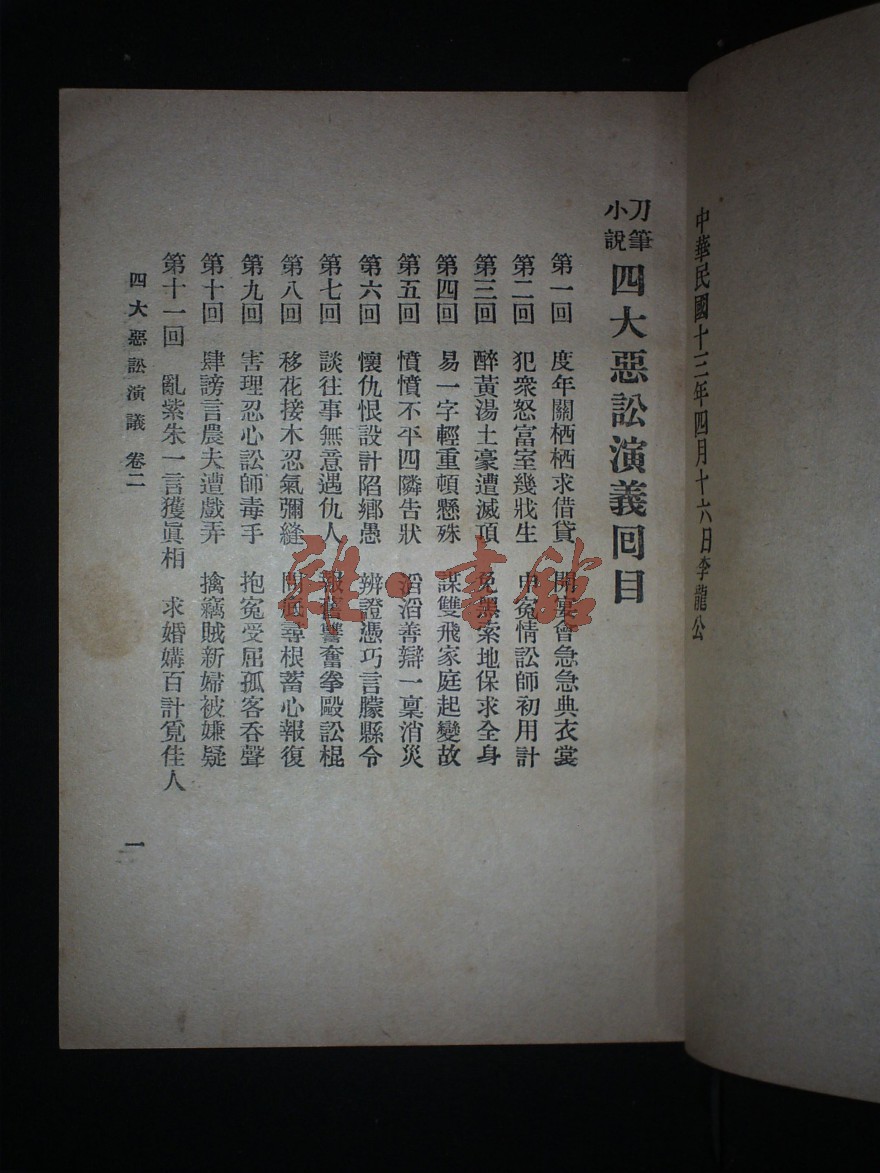 中華民國十三年四月十六日李龍公
刀筆小說 四大惡訟演義回目
第一回 度年關栖栖求借貸 開宴會急急典衣裳
第二回 犯衆怒富室幾戕生 申冤情訟師初用計
第三回 醉黃湯土豪遭滅頂 免禁索地保求全身
第四回 易一字輕重頓懸殊 謀雙飛家庭起變故
第五回 憤憤不平四隣告狀 滔滔善辯一稟消災
第六回 懷仇恨設計陷鄉愚 辨證憑巧言朦縣令
第七回 談往事無意遇仇人 報舊讐奮拳毆訟棍
第八回 移花接木忍氣彌縫 底尋根蓄心報復
第九回 害理忍心訟師毒手 抱冤受屈孤客吞聲
第十回 肆謗言農夫遭戲弄 擒竊賊新婦被嫌疑
第十一回 亂紫朱一言獲眞相 求婚媾百計覓佳人
四大惡訟演議 卷二
一
雜·書館